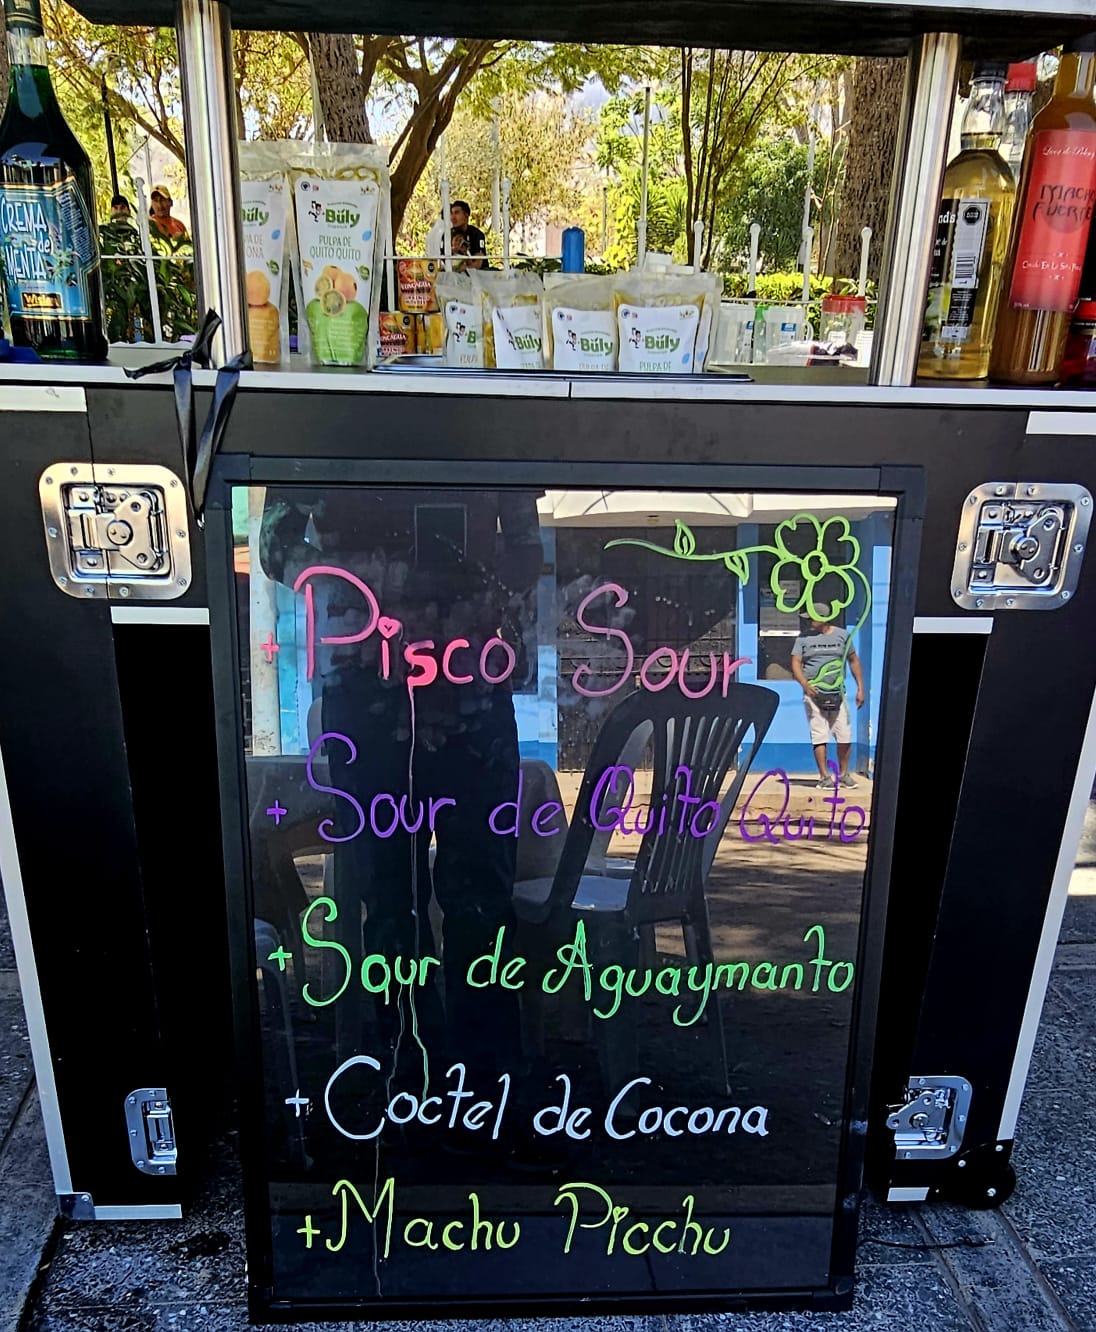 CREMA
de
MENTA
Büly
Büly
PULPA DE
QUITO QUITO
Büly
Büly
Büly
PULPA DE
MACHO
FUERTE
+ Pisco Sour
+ Sour de Quito Quito
+ Sour de Aguaymanto
+ Coctel de Cocona
+ Machu Picchu